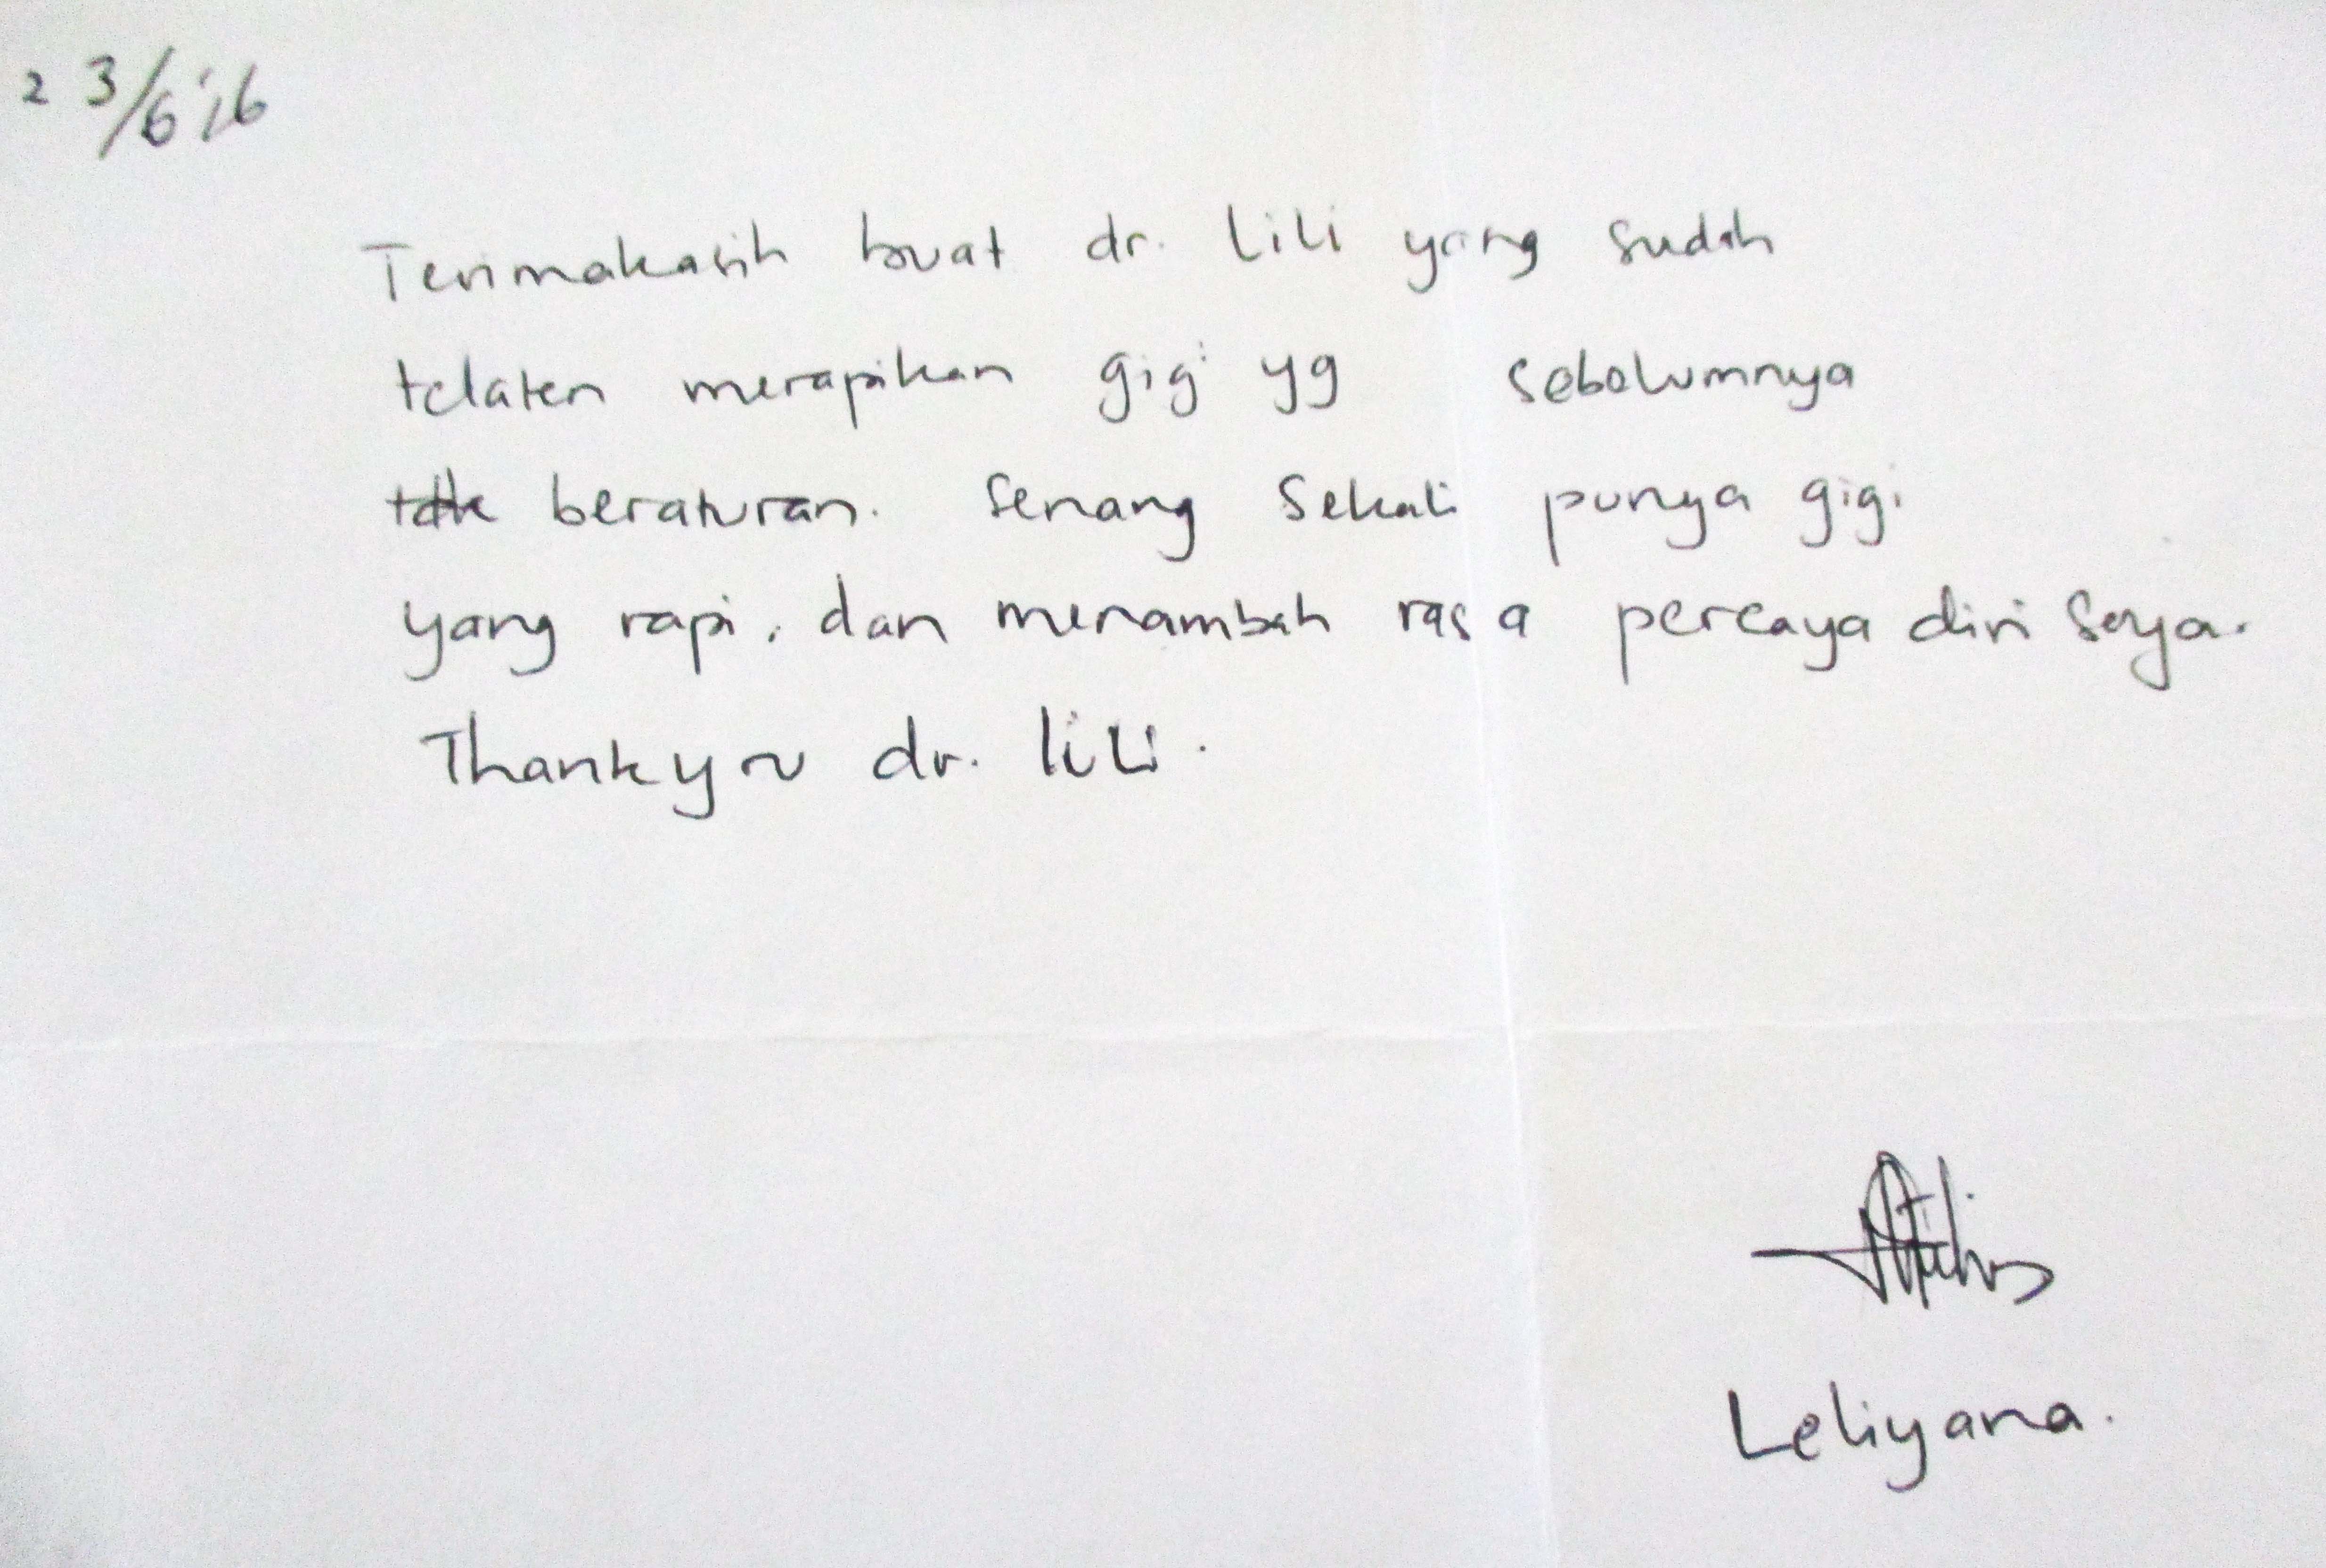 23/6'16
Terimakasih buat dr. lili yang sudah
telaten merapikan gigi yg sebelumnya
tdk beraturan. Senang Sekali punya gigi
yang rapi, dan menambah rasa percaya diri saya.
Thankyou dr. lili.
Leliyana.